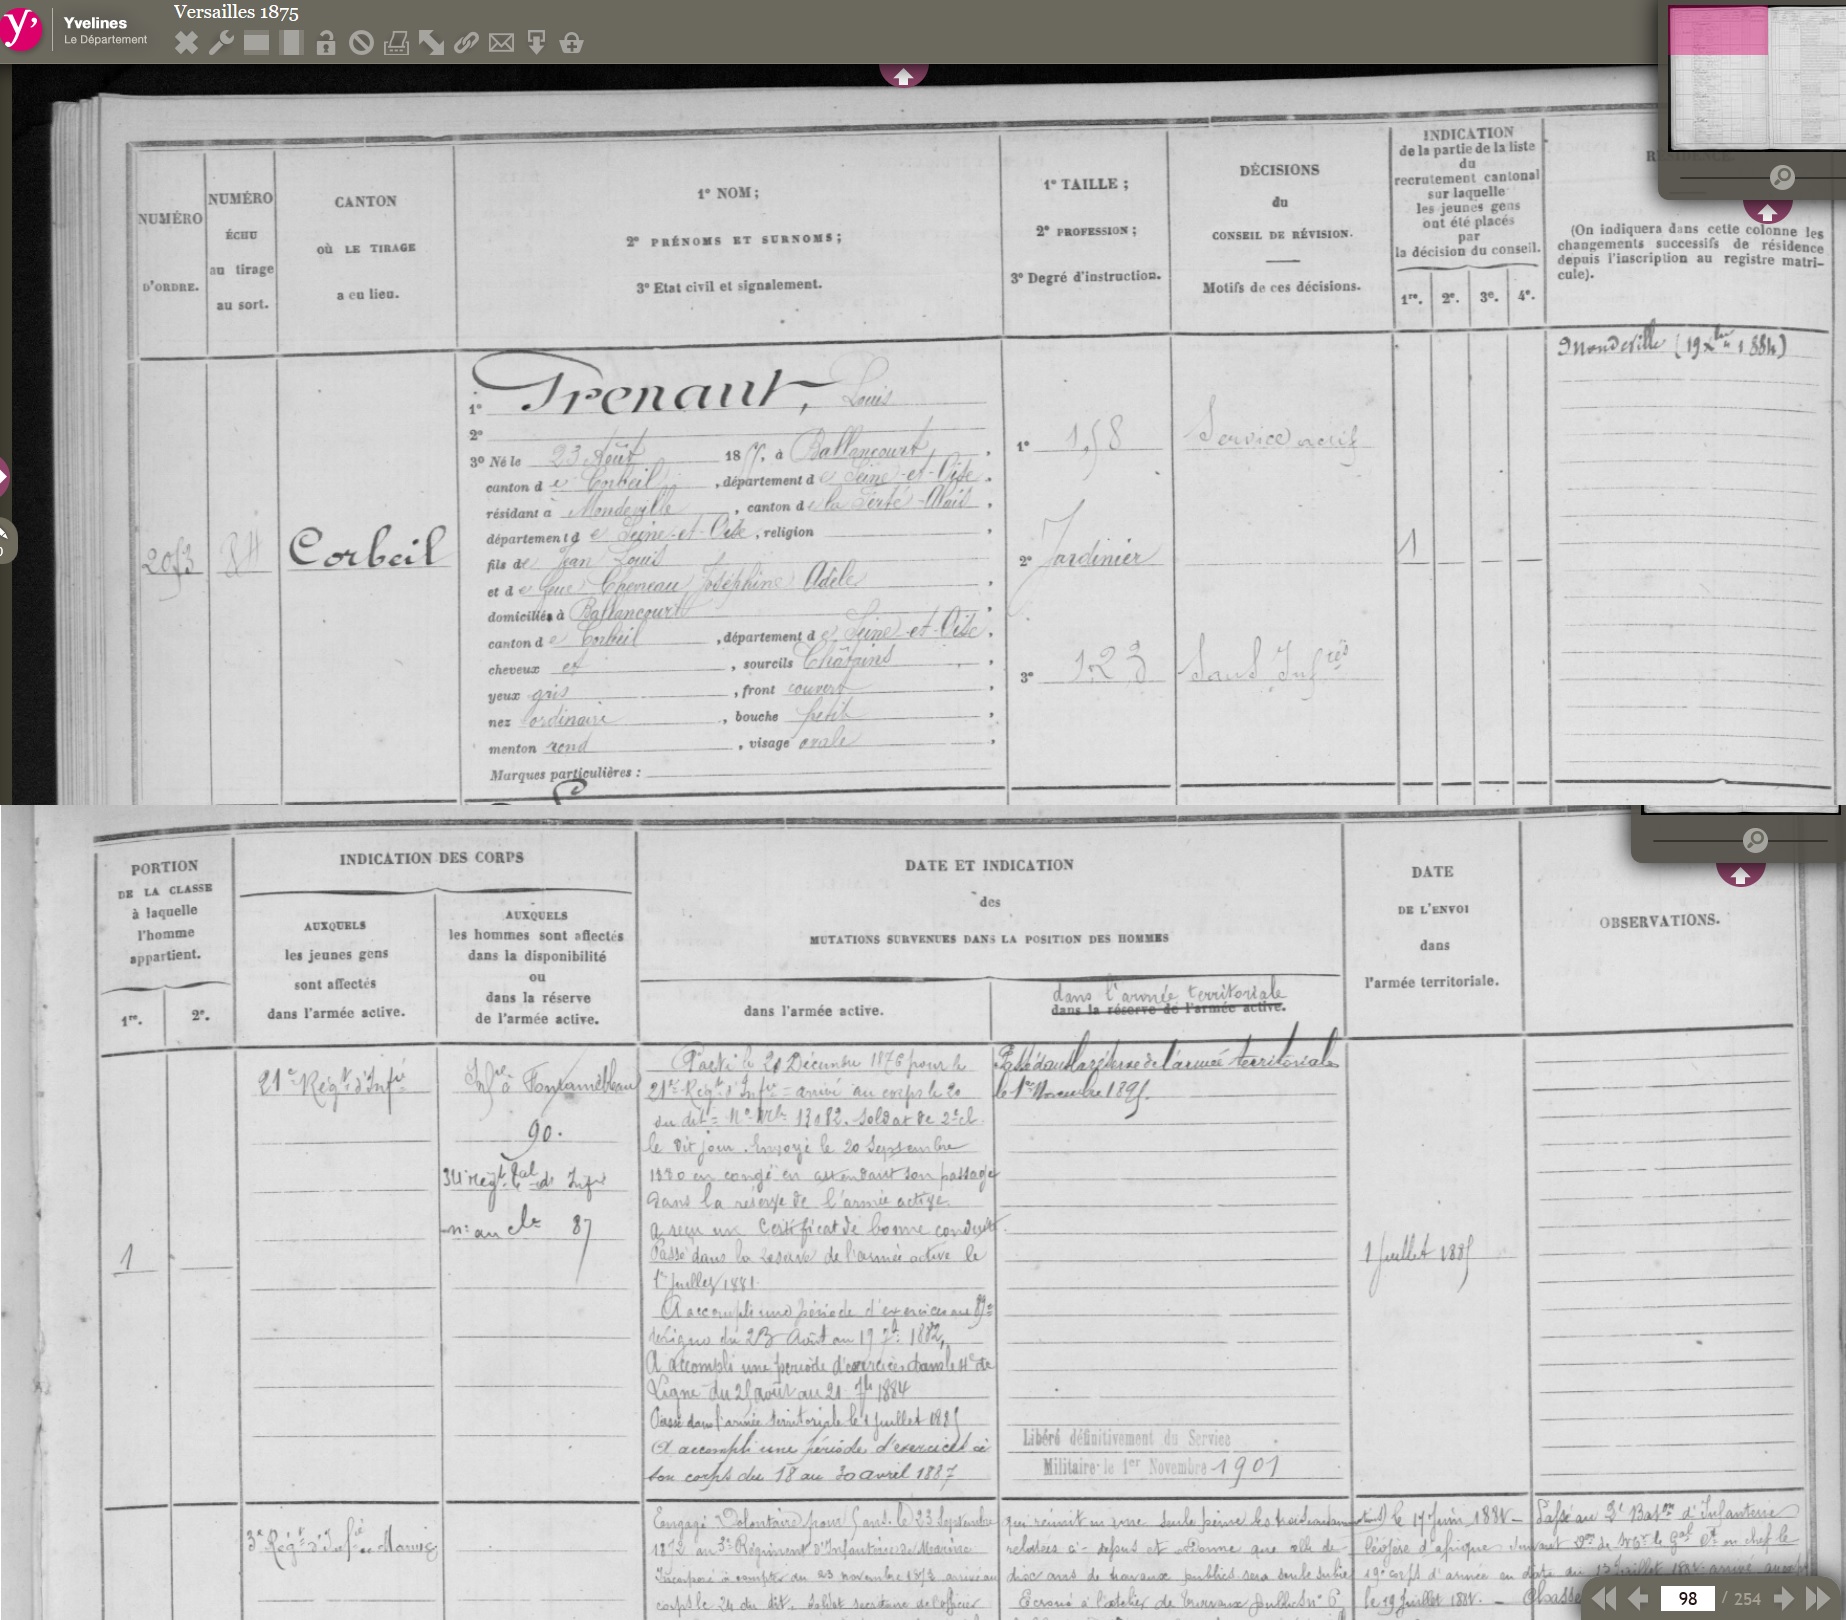 Versailles 1875
Yvelines
Le Département
NUMÉRO
D'ORDRE.
NUMÉRO
ÉCHU
au tirage
au sort.
CANTON
OÙ LE TIRAGE
a eu lieu.
1º NOM;
2º PRÉNOMS ET SURNOMS;
3º Etat civil et signalement.
1º TAILLE;
2º PROFESSION;
3º Degré d'instruction.
DÉCISIONS
du
CONSEIL DE RÉVISION.
Motifs de ces décisions.
INDICATION
de la partie de la liste
du
recrutement cantonal
sur laquelle
les jeunes gens
ont été placés
par
la décision du conseil.
1re. 2e. 3e. 4e.
RÉSIDENCE
(On indiquera dans cette colonne les
changements successifs de résidence
depuis l'inscription au registre matri-
cule).
Mondeville (19 xbre 1884)
2053
84
Corbeil
1º Trenaut, Louis
2º
3º Né le 23 Août 185, à Ballancourt,
canton de Corbeil, département de Seine-et-Oise,
résidant à Mondeville, canton de la Ferté-Alais,
département de Seine-et-Oise, religion
fils de Jean Louis
et de Joséphine Adèle,
domiciliés à Ballancourt,
canton de Corbeil, département de Seine-et-Oise,
cheveux et, sourcils Châtains,
yeux gris, front couvert,
nez ordinaire, bouche petite,
menton rond, visage ovale,
Marques particulières :
1º 1,58
2º Jardinier
3º 1.2.3
Service actif
Sans Inftés
1
PORTION
DE LA CLASSE
à laquelle
l'homme
appartient.
1re. 2e.
INDICATION DES CORPS
AUXQUELS
les jeunes gens
sont affectés
dans l'armée active.
AUXQUELS
les hommes sont affectés
dans la disponibilité
ou
dans la réserve
de l'armée active.
DATE ET INDICATION
des
MUTATIONS SURVENUES DANS LA POSITION DES HOMMES
dans l'armée active.
dans l'armée territoriale
dans la réserve de l'armée active.
DATE
DE L'ENVOI
dans
l'armée territoriale.
OBSERVATIONS.
1
21e Régt d'Infie
Infie à Fontainebleau
90.
34e Régt tal de Infie
87
Parti le 20 Décembre 1876 pour le
21e Régt d'Infie = arrivé au corps le 20
du dit = No Mle 13082. Soldat de 2e cl.
le dit jour. Envoyé le 20 Septembre
1880 en congé en attendant son passage
dans la réserve de l'armée active.
a reçu un Certificat de bonne conduite.
Passé dans la réserve de l'armée active le
1er juillet 1881.
A accompli une période d'exercices au 89e
de Ligne du 23 Août au 19 7bre 1882,
A accompli une période d'exercices dans le 4e de
Ligne du 25 août au 21 7bre 1884
Passé dans l'armée territoriale le 1 Juillet 1885
A accompli une période d'exercices à
son corps du 18 au 30 avril 1887
Passé dans la réserve de l'armée territoriale
le 1er Novembre 1895.
Libéré définitivement du Service
Militaire le 1er Novembre 1901
1 Juillet 1885
3e Régt d'Infie de Marine
Engagé Volontaire pour 5 ans le 23 Septembre
1872 au 3e Régiment d'Infanterie de Marine
Incorporé à compter du 23 novembre 1872 arrivé au
corps le 24 du dit. Soldat secrétaire de l'officier
qui réunit en une seule peine les trois
relatées ci-dessus et ordonne que celle de
dix ans de travaux publics sera seule subie
Ecroué à l'atelier de travaux publics no 6
le 17 Juin 1881 - Passé au 2e Baton d'Infanterie
légère d'afrique en chef le
19e corps d'armée en date du 13 juillet arrivé au corps
le 19 Juillet 1881. -
98 / 254